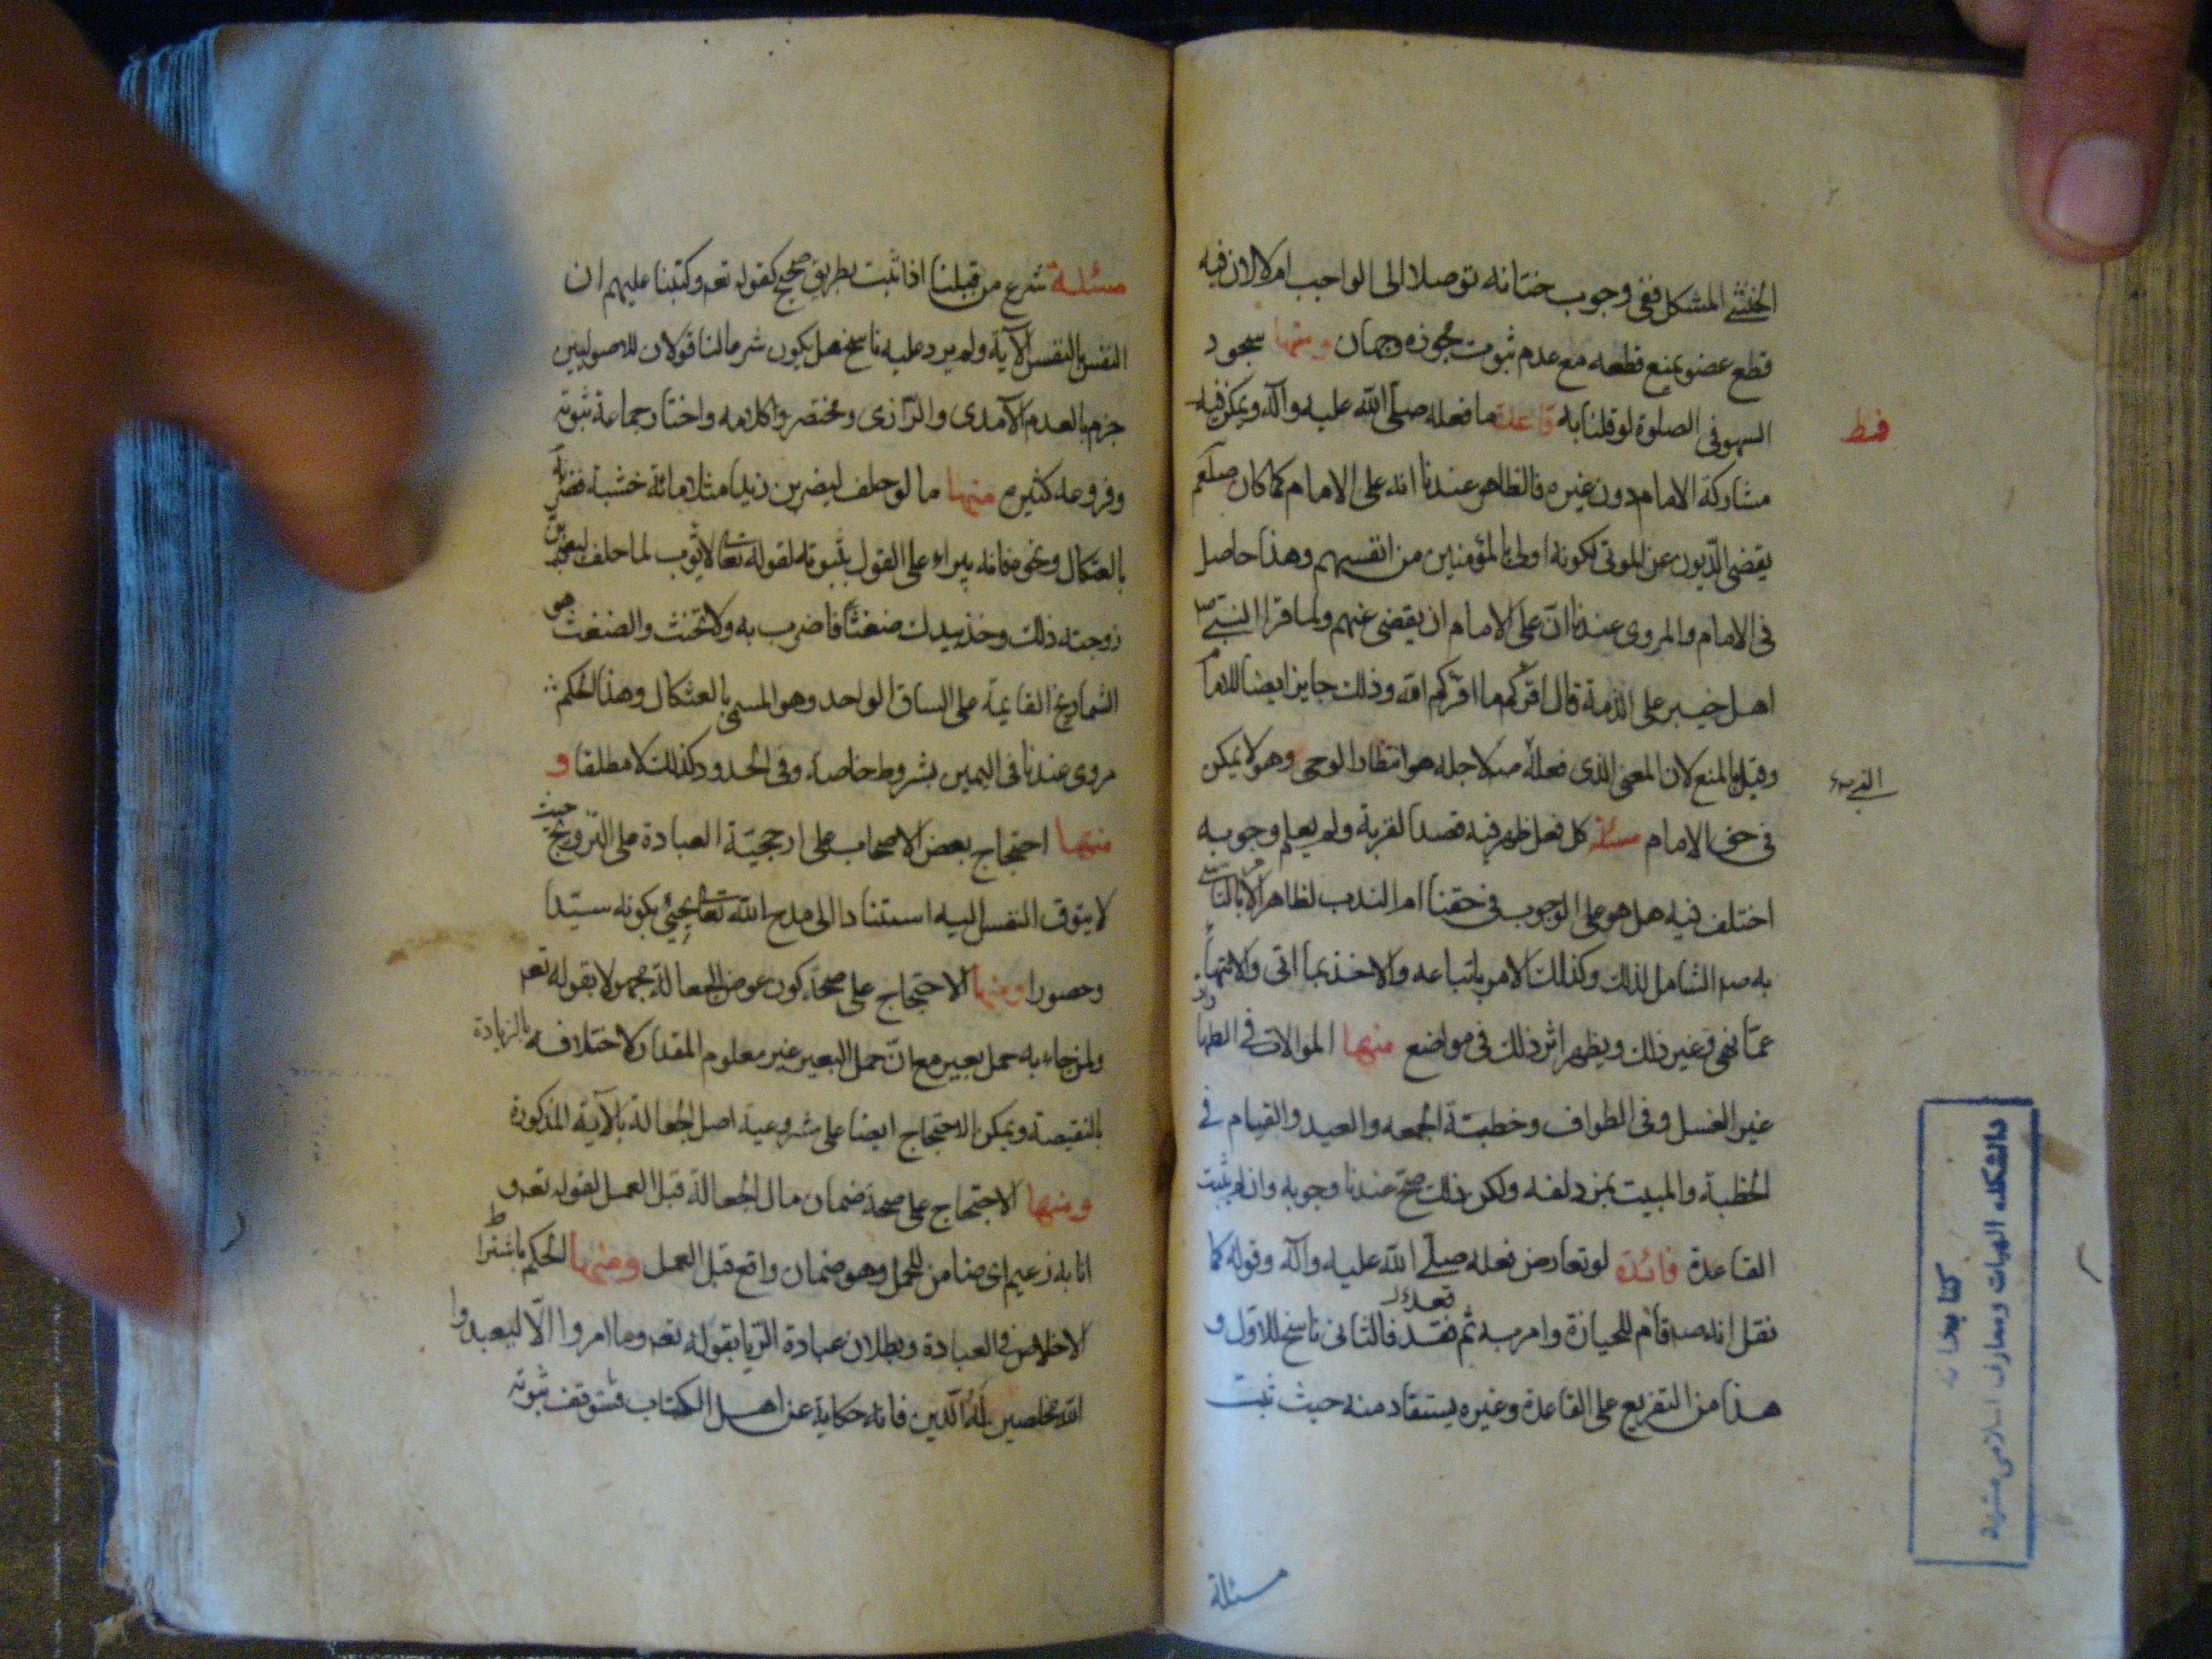 الخنثى المشكل ففى وجوب ختانه توصلا الى الواجب ام لا لان فيه
قطع عضو يمنع قطعه مع عدم ثبوت مجوزه وجهان ومنها سجود
السهو فى الصلوة لو قلنا به قاعدة ما فعله صلى الله عليه وآله ويمكن فيه
مشاركة الامام دون غيره فالظاهر عندنا انه على الامام كما كان صلعم
يقضى الديون عن الموتى لكونه اولى بالمؤمنين من انفسهم وهذا حاصل
فى الامام والمروى عندنا ان على الامام ان يقضى عنهم ولما قرر النبى ص
اهل خيبر على الذمة قال اقركم ما اقركم الله وذلك جايز ايضا للاما
وقيل بالمنع لان المعنى الذى فعله ص لاجله هو انتظار الوحى وهو لا يمكن
فى حق الامام مسئلة كل فعل ظهر فيه قصد القربة ولم يعلم وجوبه
اختلف فيه هل هو على الوجوب فى حقنا ام الندب لظاهر الامر بالتاسى
به صم الشامل لذلك وكذلك الامر باتباعه والاخذ بما اتى والانتهاء
عما نهى وغير ذلك ويظهر اثر ذلك فى مواضع منها الموالات فى الطهارة
غير الغسل وفى الطواف وخطبة الجمعه والعيد والقيام فى
الخطبة والمبيت بمزدلفه ولكن ذلك صح عندنا وجوبه وان لم يثبت
القاعدة فائدة لو تعارض فعله صلى الله عليه وآله وقوله كما
نقل انه صم قام للجنازة وامر به ثم قعد فالثانى ناسخ للاول و
هذا من التفريع على القاعدة وغيره يستفاد منه حيث ثبت
مسئلة
كتابخانه
دانشكده الهيات ومعارف اسلامى مشهد
مسئلة شرع من قبلنا اذا ثبت بطريق صحيح كقوله تعم وكتبنا عليهم ان
النفس بالنفس الآية ولم يرد عليه ناسخ هل يكون شرعا لنا قولان للاصوليين
جزم بالعدم الآمدى والرازى ومختصروا كلامه واختار جماعة ثبوته
وفروعه كثيرة منها ما لو حلف ليضربن زيدا مثلا مائة خشبة فضربه
بالعثكال ونحوه فانه يبراء على القول بثبوته لقوله تعالى لايوب لما حلف ليضربن
زوجته ذلك وخذ بيدك ضغثا فاضرب به ولا تحنث والضغث هو
الشماريخ القايمة على الساق الواحد وهو المسمى بالعثكال وهذا الحكم
مروى عندنا فى اليمين بشروط خاصة وفى الحدود كذلك لا مطلقا و
منها احتجاج بعض الاصحاب على ارجحية العبادة على التزويج حيث
لا يتوق النفس اليه استنادا الى مدح الله تعالى يحيى بكونه سيدا
وحصورا ومنها الاحتجاج على صحة كون عوض الجعالة مجهولا بقوله تعم
ولمن جاء به حمل بعير مع ان حمل البعير غير معلوم المقدار لاختلافه بالزيادة
بالنقيصة ويمكن الاحتجاج ايضا على شروعية اصل الجعالة بالآية المذكورة
ومنها الاحتجاج على صحة ضمان مال الجعالة قبل العمل لقوله تعم و
انا به زعيم اى ضامن للحمل وهو ضمان واقع قبل العمل ومنها الحكم باشتراط
الاخلاص فى العبادة وبطلان عبادة الريا بقوله تعم وما امروا الا ليعبدوا
الله مخلصين له الدين فانه حكاية عن اهل الكتاب فيتوقف ثبوته